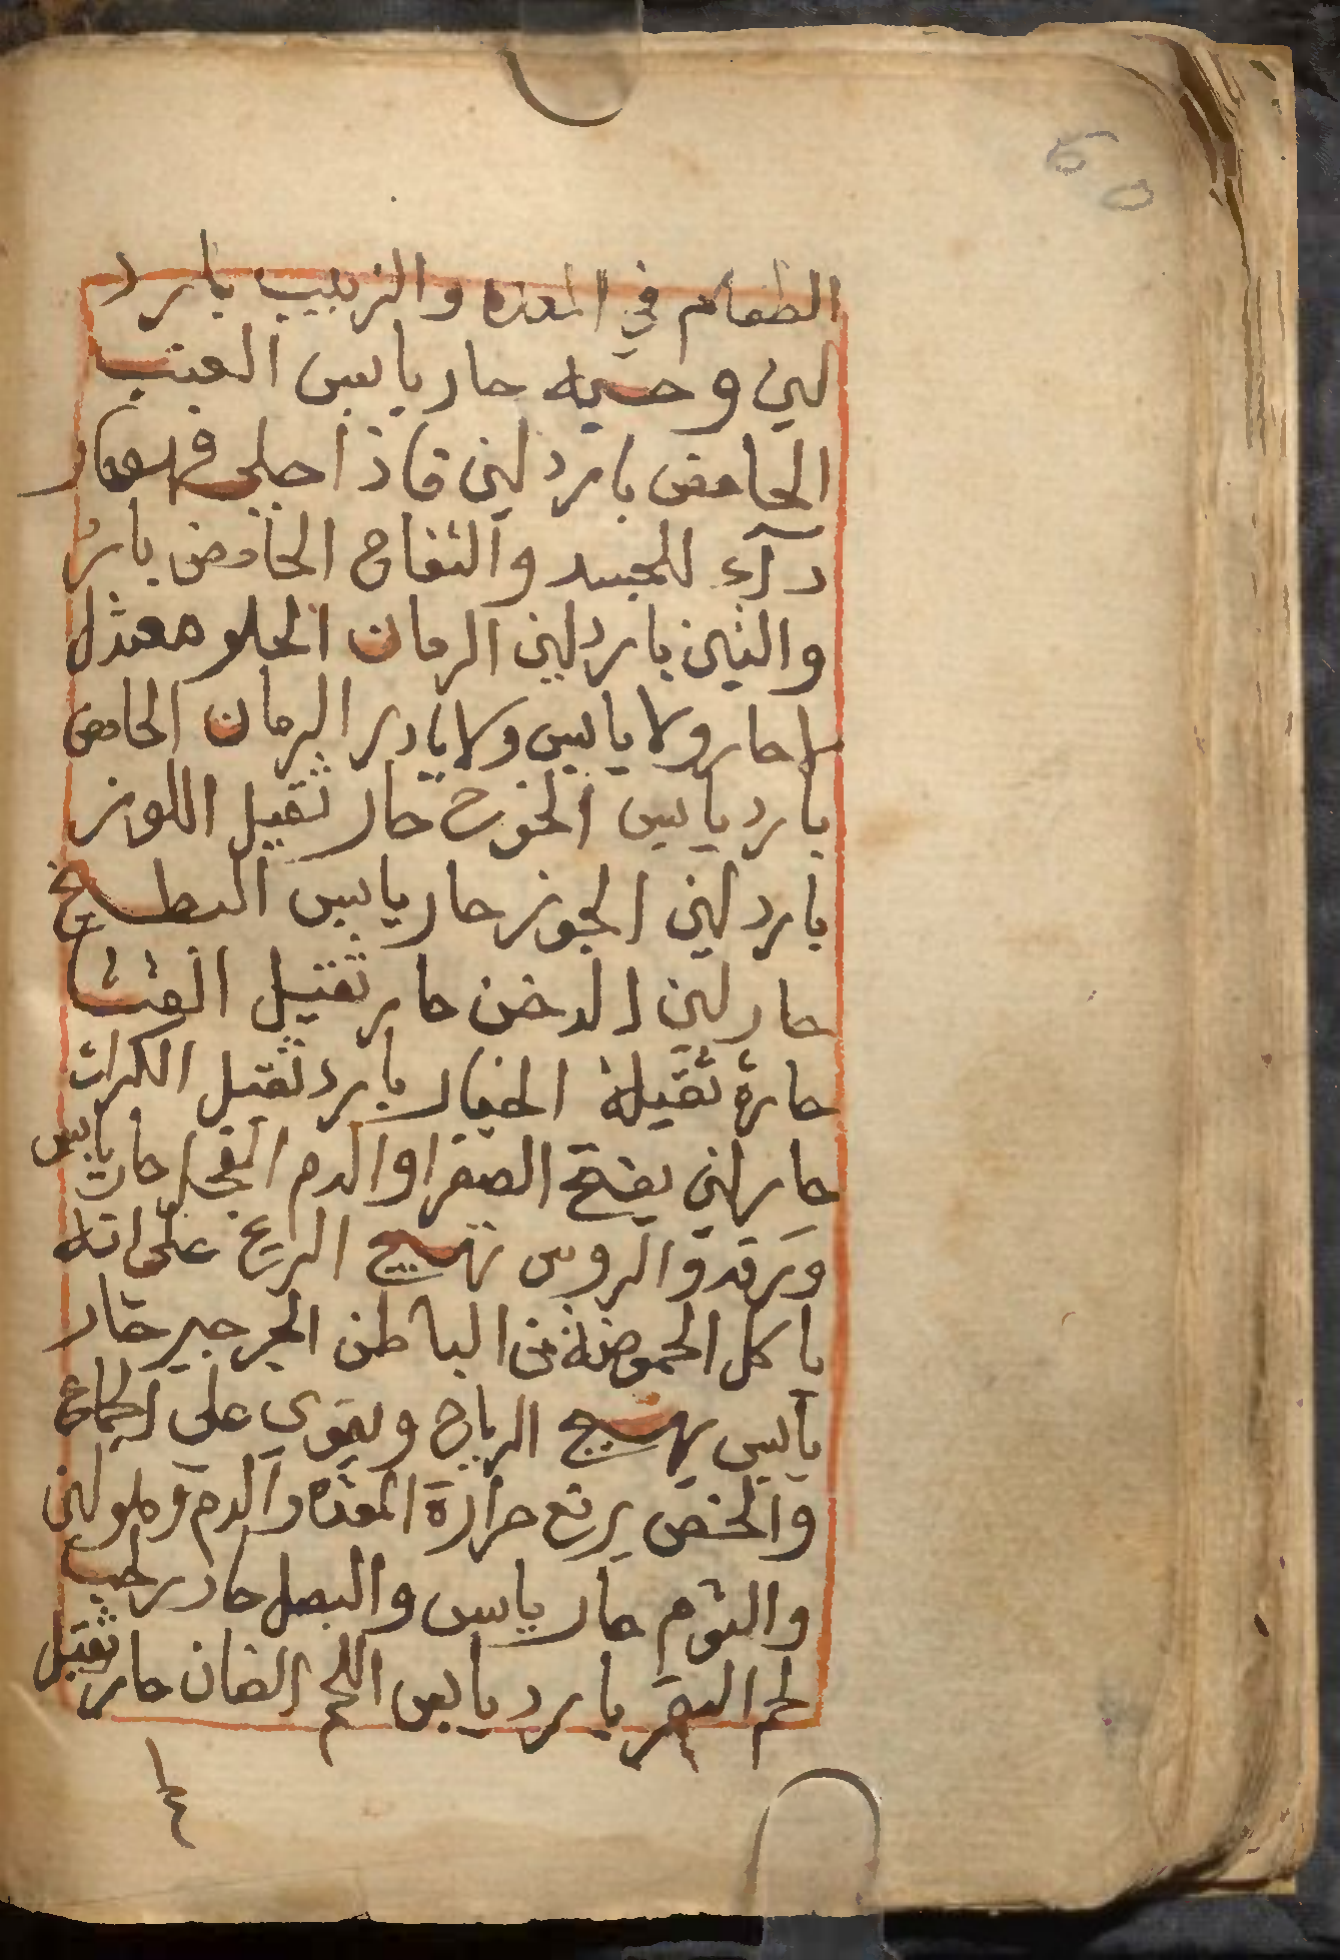 الطعام في المعده والزبيب بارد
لين وحبه حار يابس العنب
الحامض بارد لين فاذا حلى فهو حار
دآء للجسد والتفاح الحامض بارد
والتين بارد لين الرمان الحلو معتدل
لا حار ولا يابس ولا بارد الرمان الحامض
بارد يابس الخوخ حار ثقيل اللوز
بارد لين الجوز حار يابس البطيخ
حار لين الدخن حار ثقيل القثا
حارة ثقيلة الخيار بارد ثقيل الكراث
حار لين يفتح الصفرا والدم الفجل حار يابس
ويرقد والروس تهيج الريح على انه
ياكل الحموضة من الباطن الجرجير حار
يابس يهيج الرياح ويقوي على الجماع
والخص يرفع حرارة المعده والدم وهو لين
والثوم حار يابس والبصل حار
لحم البقر بارد يابس اللحم الضان حار ثقيل
١٤